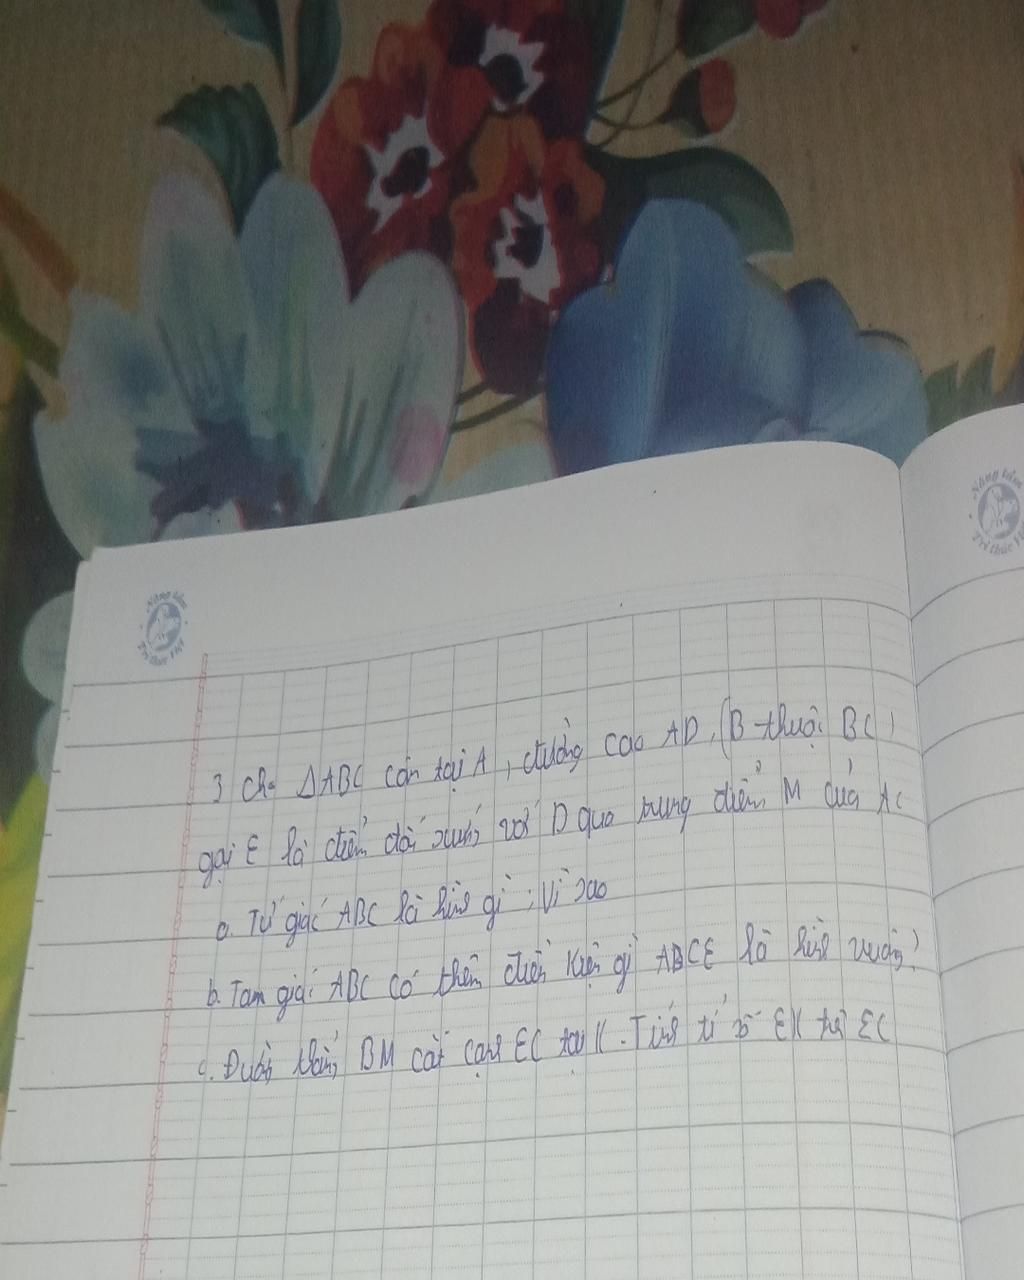 Nâng tầm
Trí thức Việt
Nâng tầm
Trí thức Vi
3 Cho ΔABC cân tại A, đường cao AD, (B thuộc BC)
gọi E là điểm đối xứng với D qua trung điểm M của AC
a. Tứ giác ABC là hình gì ; Vì sao
b. Tam giác ABC có thêm điều kiện gì ABCE là hình vuông?
c. Đường thẳng BM cắt cạnh EC tại K. Tính tỉ số EK từ EC